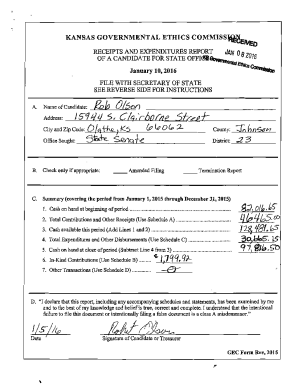 KANSAS GOVERNMENTAL ETHICS COMMISSION
RECEIVED
RECEIPTS AND EXPENDITURES REPORT
JAN 08 2016
OF A CANDIDATE FOR STATE OFFICE
KS Governmental Ethics Commission
January 10, 2016
FILE WITH SECRETARY OF STATE
SEE REVERSE SIDE FOR INSTRUCTIONS
A. Name of Candidate: Rob Olson
Address: 15944 S. Clairborne Street
City and Zip Code: Olathe, KS 66062 County: Johnson
Office Sought: State Senate District: 23
B. Check only if appropriate: Amended Filing Termination Report
C. Summary (covering the period from January 1, 2015 through December 31, 2015)
1. Cash on hand at beginning of period 82,016.65
2. Total Contributions and Other Receipts (Use Schedule A) 46,465.00
3. Cash available this period (Add Lines 1 and 2) 128,481.65
4. Total Expenditures and Other Disbursements (Use Schedule C) 30,665.15
5. Cash on hand at close of period (Subtract Line 4 from 3) 97,816.50
6. In-Kind Contributions (Use Schedule B) $1,799.92
7. Other Transactions (Use Schedule D) 0
D. "I declare that this report, including any accompanying schedules and statements, has been examined by me
and to the best of my knowledge and belief is true, correct and complete. I understand that the intentional
failure to file this document or intentionally filing a false document is a class A misdemeanor."
1/5/16
Date Signature of Candidate or Treasurer
GEC Form Rev, 2015